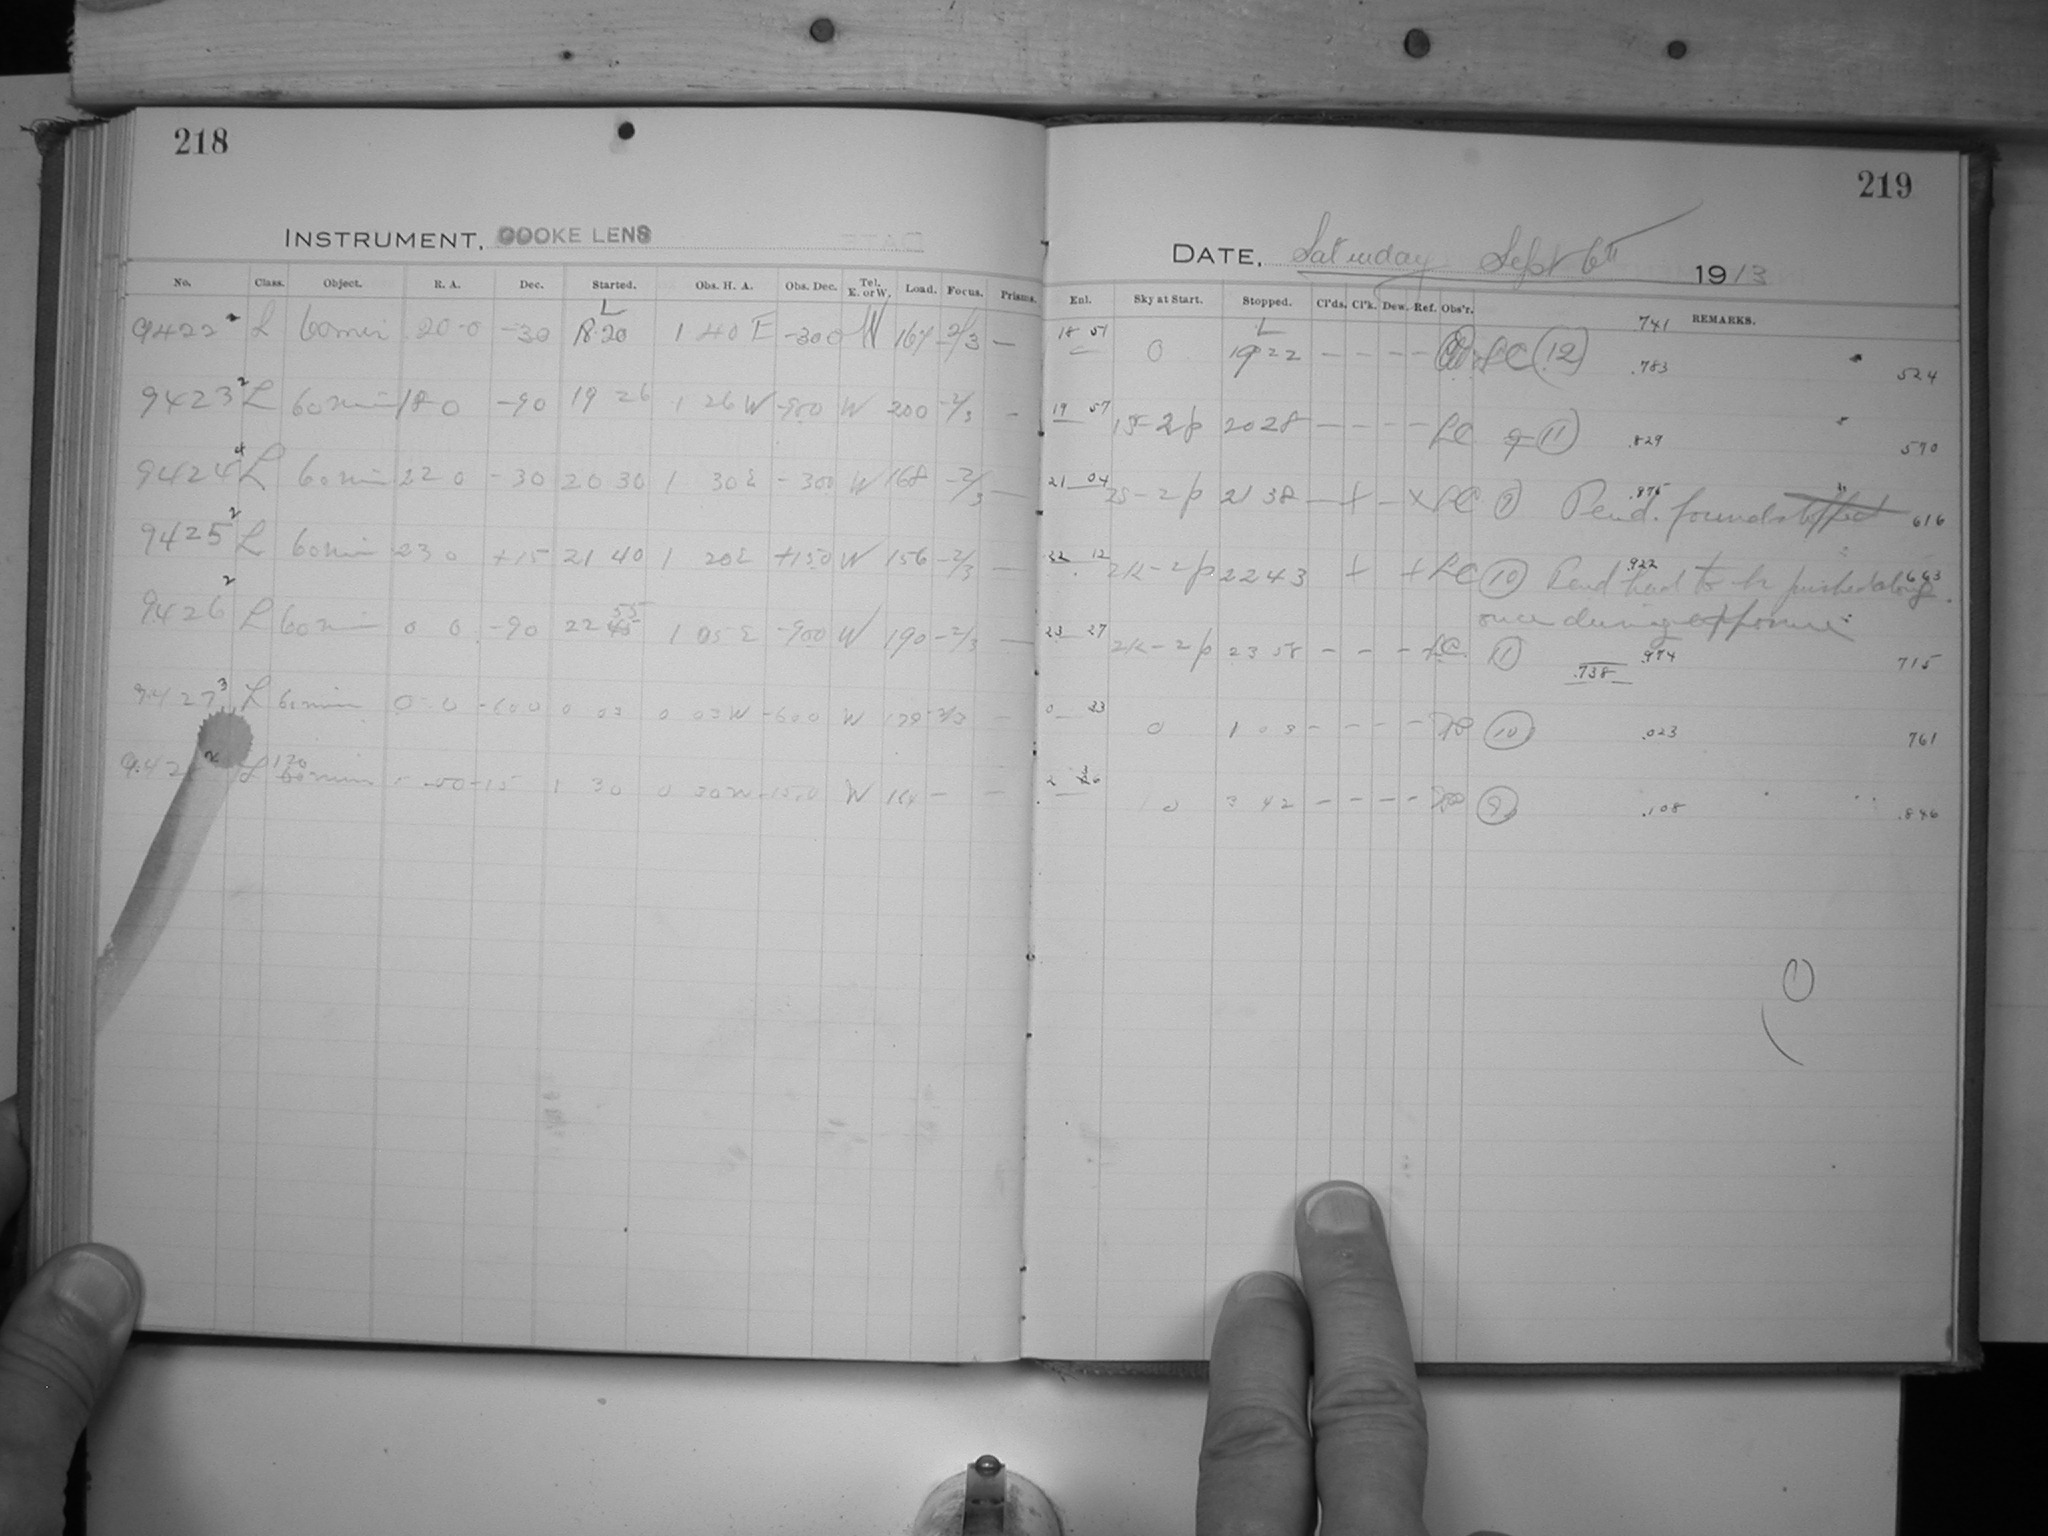 218
INSTRUMENT, COOKE LENS
No. Class. Object. R. A. Dec. Started. Obs. H. A. Obs. Dec. Tel. E. or W. Load. Focus. Prisms.
9422 2 L 60 min 20 0 -30 L 18 20 1 40 E -30 0 W 167 -2/3 —
9423 2 L 60 min 18 0 -90 19 26 1 26 W -900 W 200 -2/3 -
9424 4 L 60 min 22 0 -30 20 30 1 30 E -300 W 168 -2/3 —
9425 2 L 60 min 23 0 +15 21 40 1 20 E +150 W 156 -2/3 —
9426 2 L 60 min 0 0 -90 22 45 55 1 05 E -900 W 190 -2/3 —
9427 3 L 60 min 0 0 -600 0 03 0 03 W -600 W -2/3 —
942 2 L 120 60 min -15 1 30 0 30 W W - -
219
DATE, Saturday Sept 6th 1913
Enl. Sky at Start. Stopped. Cl'ds. Cl'k. Dew. Ref. Obs'r. REMARKS.
18 51 0 L 19 22 — — — — LC (12) .741 .783 524
19 57 15-2p 20 28 — — — — LC (11) .829 570
21 04 25-2p 21 38 — + — × LC (9) Pend. found .875 616
22 12 2K-2p 22 43 + + LC (10) Pend had to be pushed along .922 663
once during exposure
23 27 2K-2p 23 58 - - - LC. (11) .738 .974 715
0 33 0 1 03 - - - - (10) .023 761
2 0 3 42 - - - - (9) .108 .846